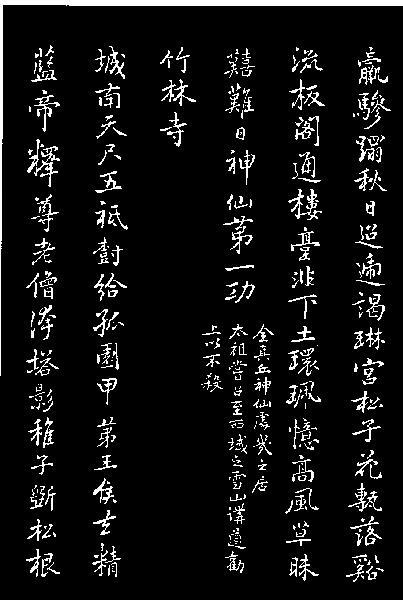 羸驂躅秋日迢遞謁琳宮松子花甎落谿
流板閣通樓臺非下土環珮憶高風草昧
囏難日神仙第一功
全真丘神仙處幾之居
太祖嘗召至西域之雪山講道勸
上以不殺
竹林寺
城南天尺五祗對給孤園甲第王侯去精
藍帝釋尊老僧塔影稚子松根